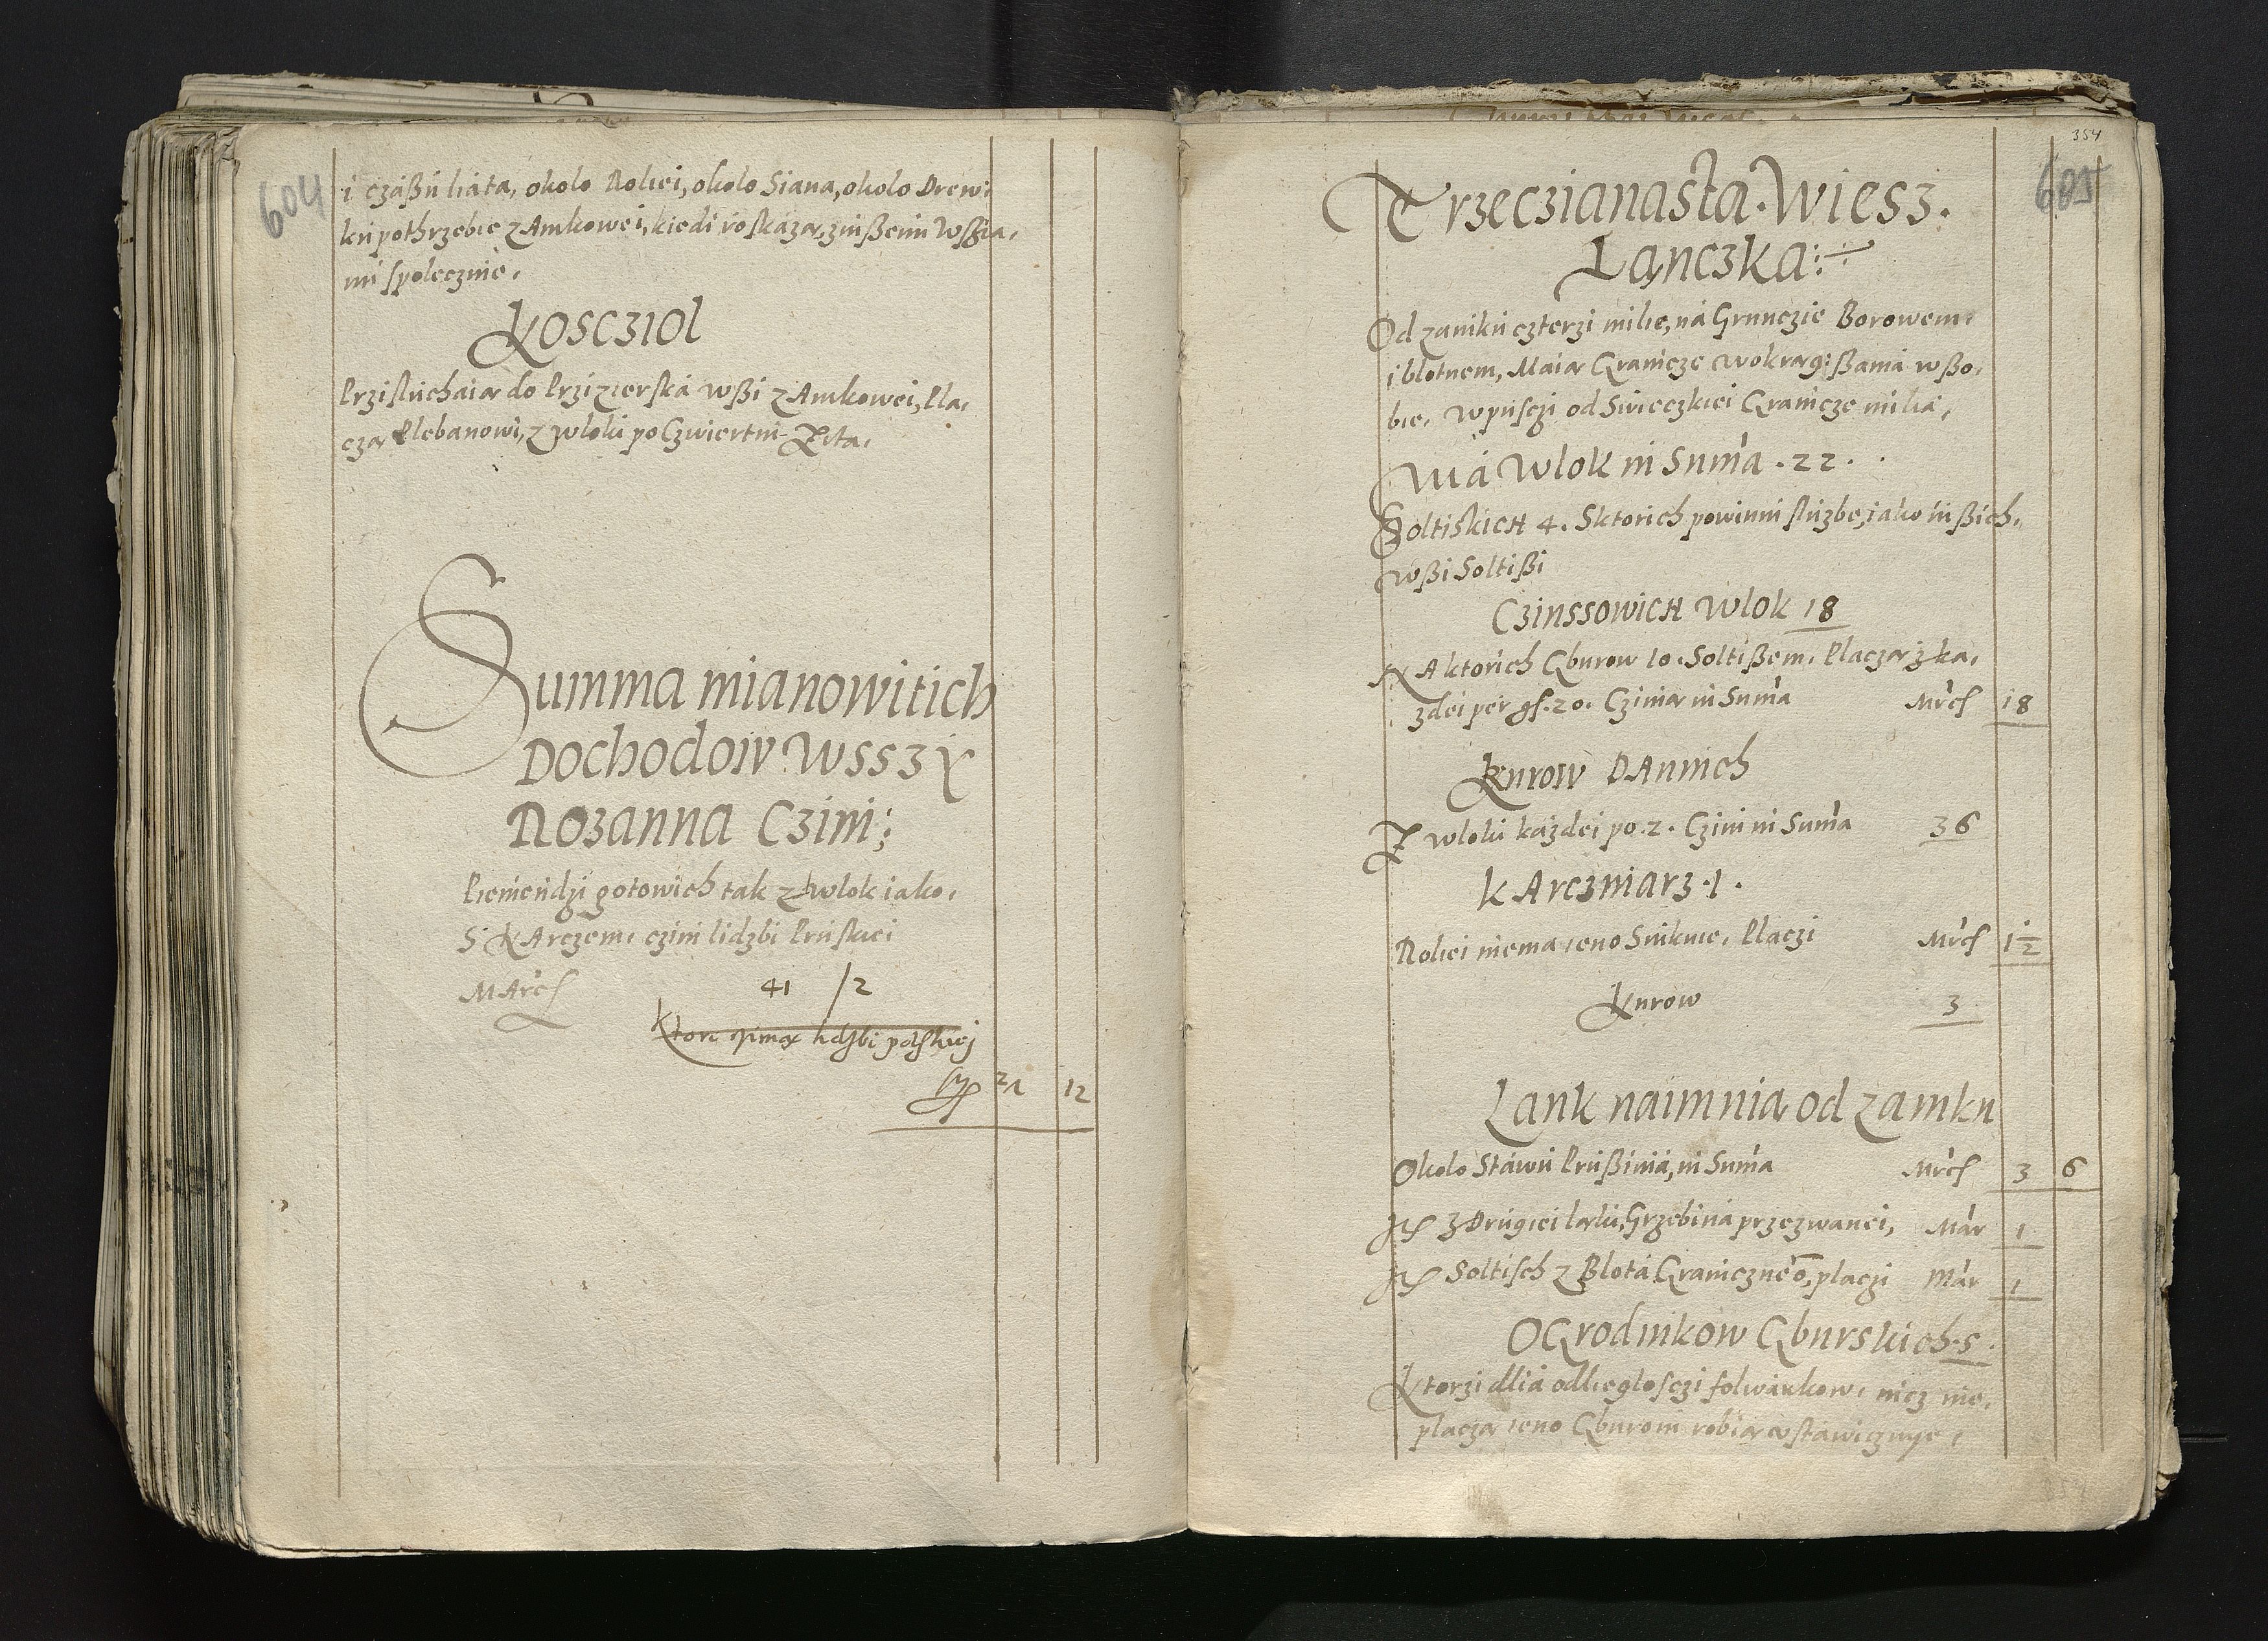 604
i czáßu liáta, około Roliei, około Siana, około Drew:
ku pothrzebie zAmkowei, kiedi roskáżą, z inßemi Wsia,
mi społecznie,
Kosczioł
Przisłuchaią do Przizierska wßi zAmkowei, Pła,
czą Plebanowi, z włoki po Czwiertni Żita,
Summa mianowitich
Dochodow Wssży
Rozanna Czini;
Pieniendzi gotowich tak z włok iako,
S KArczem, czini lidzbi Pruskiei
MArcſ 41 /2
Ktore czinią lidzbi polskiej
fl 21 12
354
605
Trzeczianasta Wiesz.
Łączka:
Od zamku czterzi milie, ná Grunczie Borowem,
i błotnem, Maią Granicze wokrąg: ßamá w ßo,
bie, w pusczi od Swieczkiei Granicze miliá,
Má Włok in Sum̃a .22.
Soltiskich 4. Sktorich powinni służbę, iako inßich,
wßi Soltißi
Czinssowich Włok 18
NA ktorich Gburow 10. Soltißem. Płaczą z ka,
zdei per gſ. 20. Czinią in Sum̃a Mrcſ 18
Kurow DAnnich
Z włoki káżdei po .2. Czini in Sum̃a 36
KArczmarz .1.
Roliei niema ieno Swiknie, Płaczi Mrcſ 1 1/2
Kurow 3
Łank naimnią od zamku
Około Stáwu Prußiniá, in Sum̃a Mrcſ 3 6
It z Drugiei łąki, Grzebiná przezwanei, Mar 1
It Soltisch z Błotá Graniczneo, płaczi Mar 1
OGrodnikow Gburskich .5.
Ktorzi dliá odliegłosczi folwarkow, nicz nie,
płaczą ieno Gburom robią vstáwicznye,